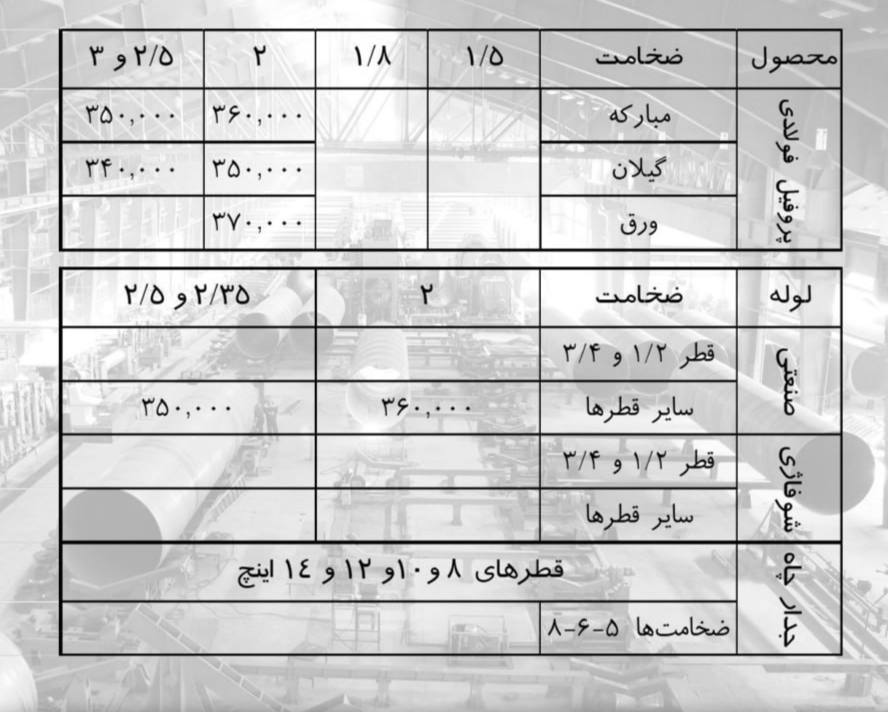 محصول ضخامت ۱/۵ ۱/۸ ۲ ۲/۵ و ۳
پروفیل فولادی
مبارکه ۳۶۰,۰۰۰ ۳۵۰,۰۰۰
گیلان ۳۵۰,۰۰۰ ۳۴۰,۰۰۰
ورق ۳۷۰,۰۰۰
لوله ضخامت ۲ ۲/۳۵ و ۲/۵
صنعتی
قطر ۱/۲ و ۳/۴
سایر قطرها ۳۶۰,۰۰۰ ۳۵۰,۰۰۰
شوفاژی
قطر ۱/۲ و ۳/۴
سایر قطرها
جدار چاه
قطرهای ۸ و ۱۰و ۱۲ و ۱٤ اینچ
ضخامت‌ها ۵-۶-۸